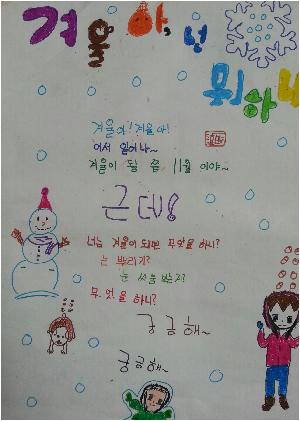 겨울아, 넌
뭐하니
겨울아! 겨울아!
어서 일어나~
겨울이 될 쯤 11월 이야~
근데!
너는 겨울이 되면 무엇을 하니?
눈 뿌리기?
눈 싸움 하기?
무엇을 하니?
궁금해~
궁금해~